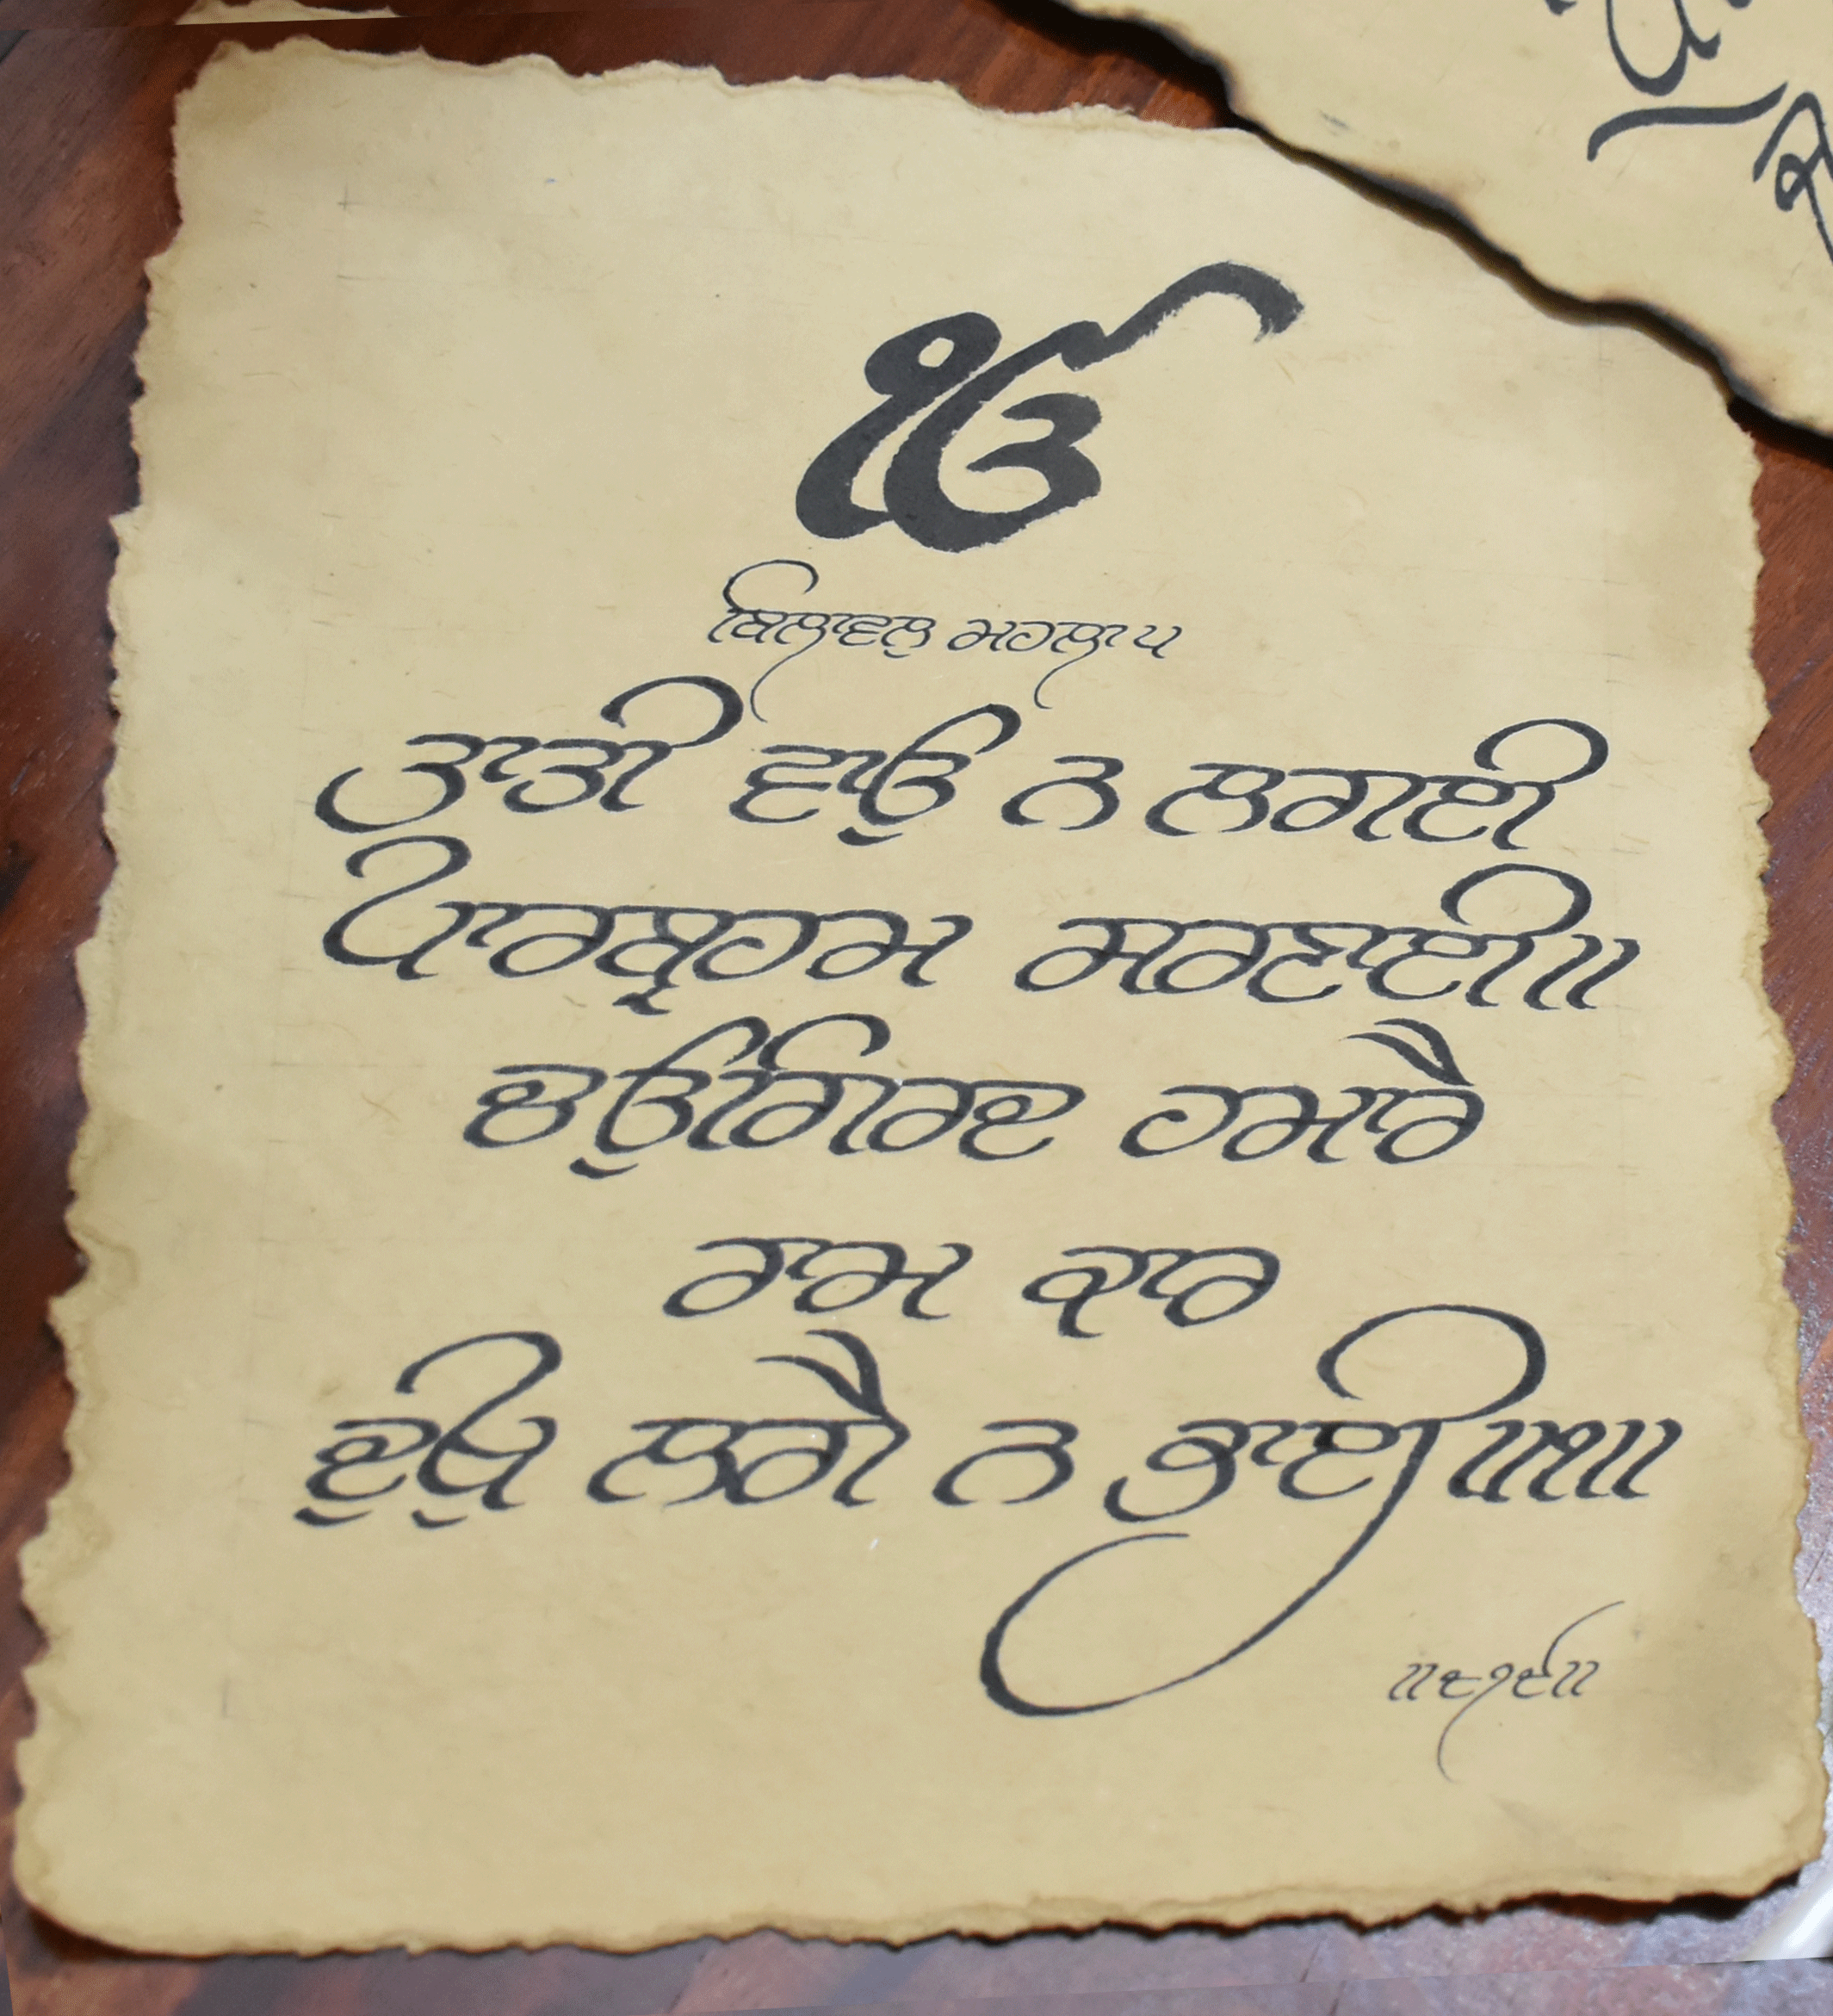 ੴ
ਬਿਲਾਵਲੁ ਮਹਲਾ ੫
ਤਾਤੀ ਵਾਉ ਨ ਲਗਈ
ਪਾਰਬ੍ਰਹਮ ਸਰਣਾਈ॥
ਚਉਗਿਰਦ ਹਮਾਰੈ
ਰਾਮ ਕਾਰ
ਦੁਖੁ ਲਗੈ ਨ ਭਾਈ॥੧॥